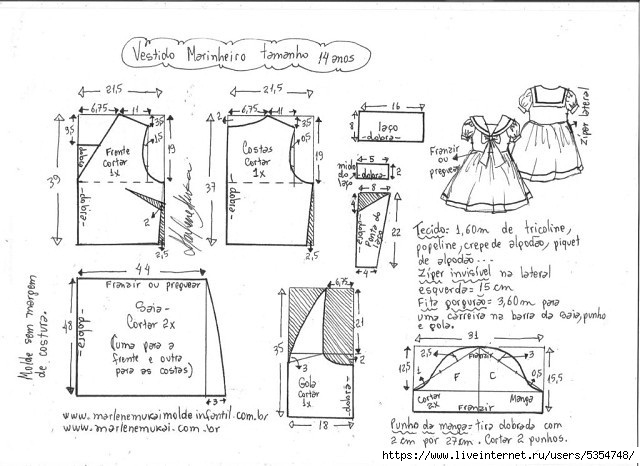 Vestido Marinheiro tamanho 14 anos
21,5
6,75
11
3,5
3,5
1,5
19
39
dobra
Frente
Cortar
1x
-dobra-
2
2,5
21,5
2
6,75
11
3,5
0,5
19
37
Costas
Cortar
1x
-dobra-
2,5
16
8
laço
-dobra-
5
miolo
do
laço
-dobra-
2
8
-dobra-
Ponta do
laço
22
4
Franzir
ou
preguear
Zíper lateral
Tecido= 1,60m de tricoline,
popeline, crepe de algodão, piquet
de algodão...
Zíper invisível na lateral
esquerda= 15 cm
Fita gorgurão= 3,60m para
uma carreira na barra da saia, punho
e gola.
Molde sem margem
de costura.
44
Franzir ou preguear
48
-dobra-
Saia-
Cortar 2x
(uma para a
frente e outra
para as costas)
3
6,75
35
21
2
3
Gola
Cortar
1x
-dobra-
18
31
12,5
2,5
Franzir
3
1
F
C
0,5
15,5
Cortar
2x
Manga
Franzir
Punho da manga= tira dobrada com
2 cm por 27cm. Cortar 2 punhos.
www.marlenemukaimoldeinfantil.com.br
www.marlenemukai.com.br
https://www.liveinternet.ru/users/5354748/